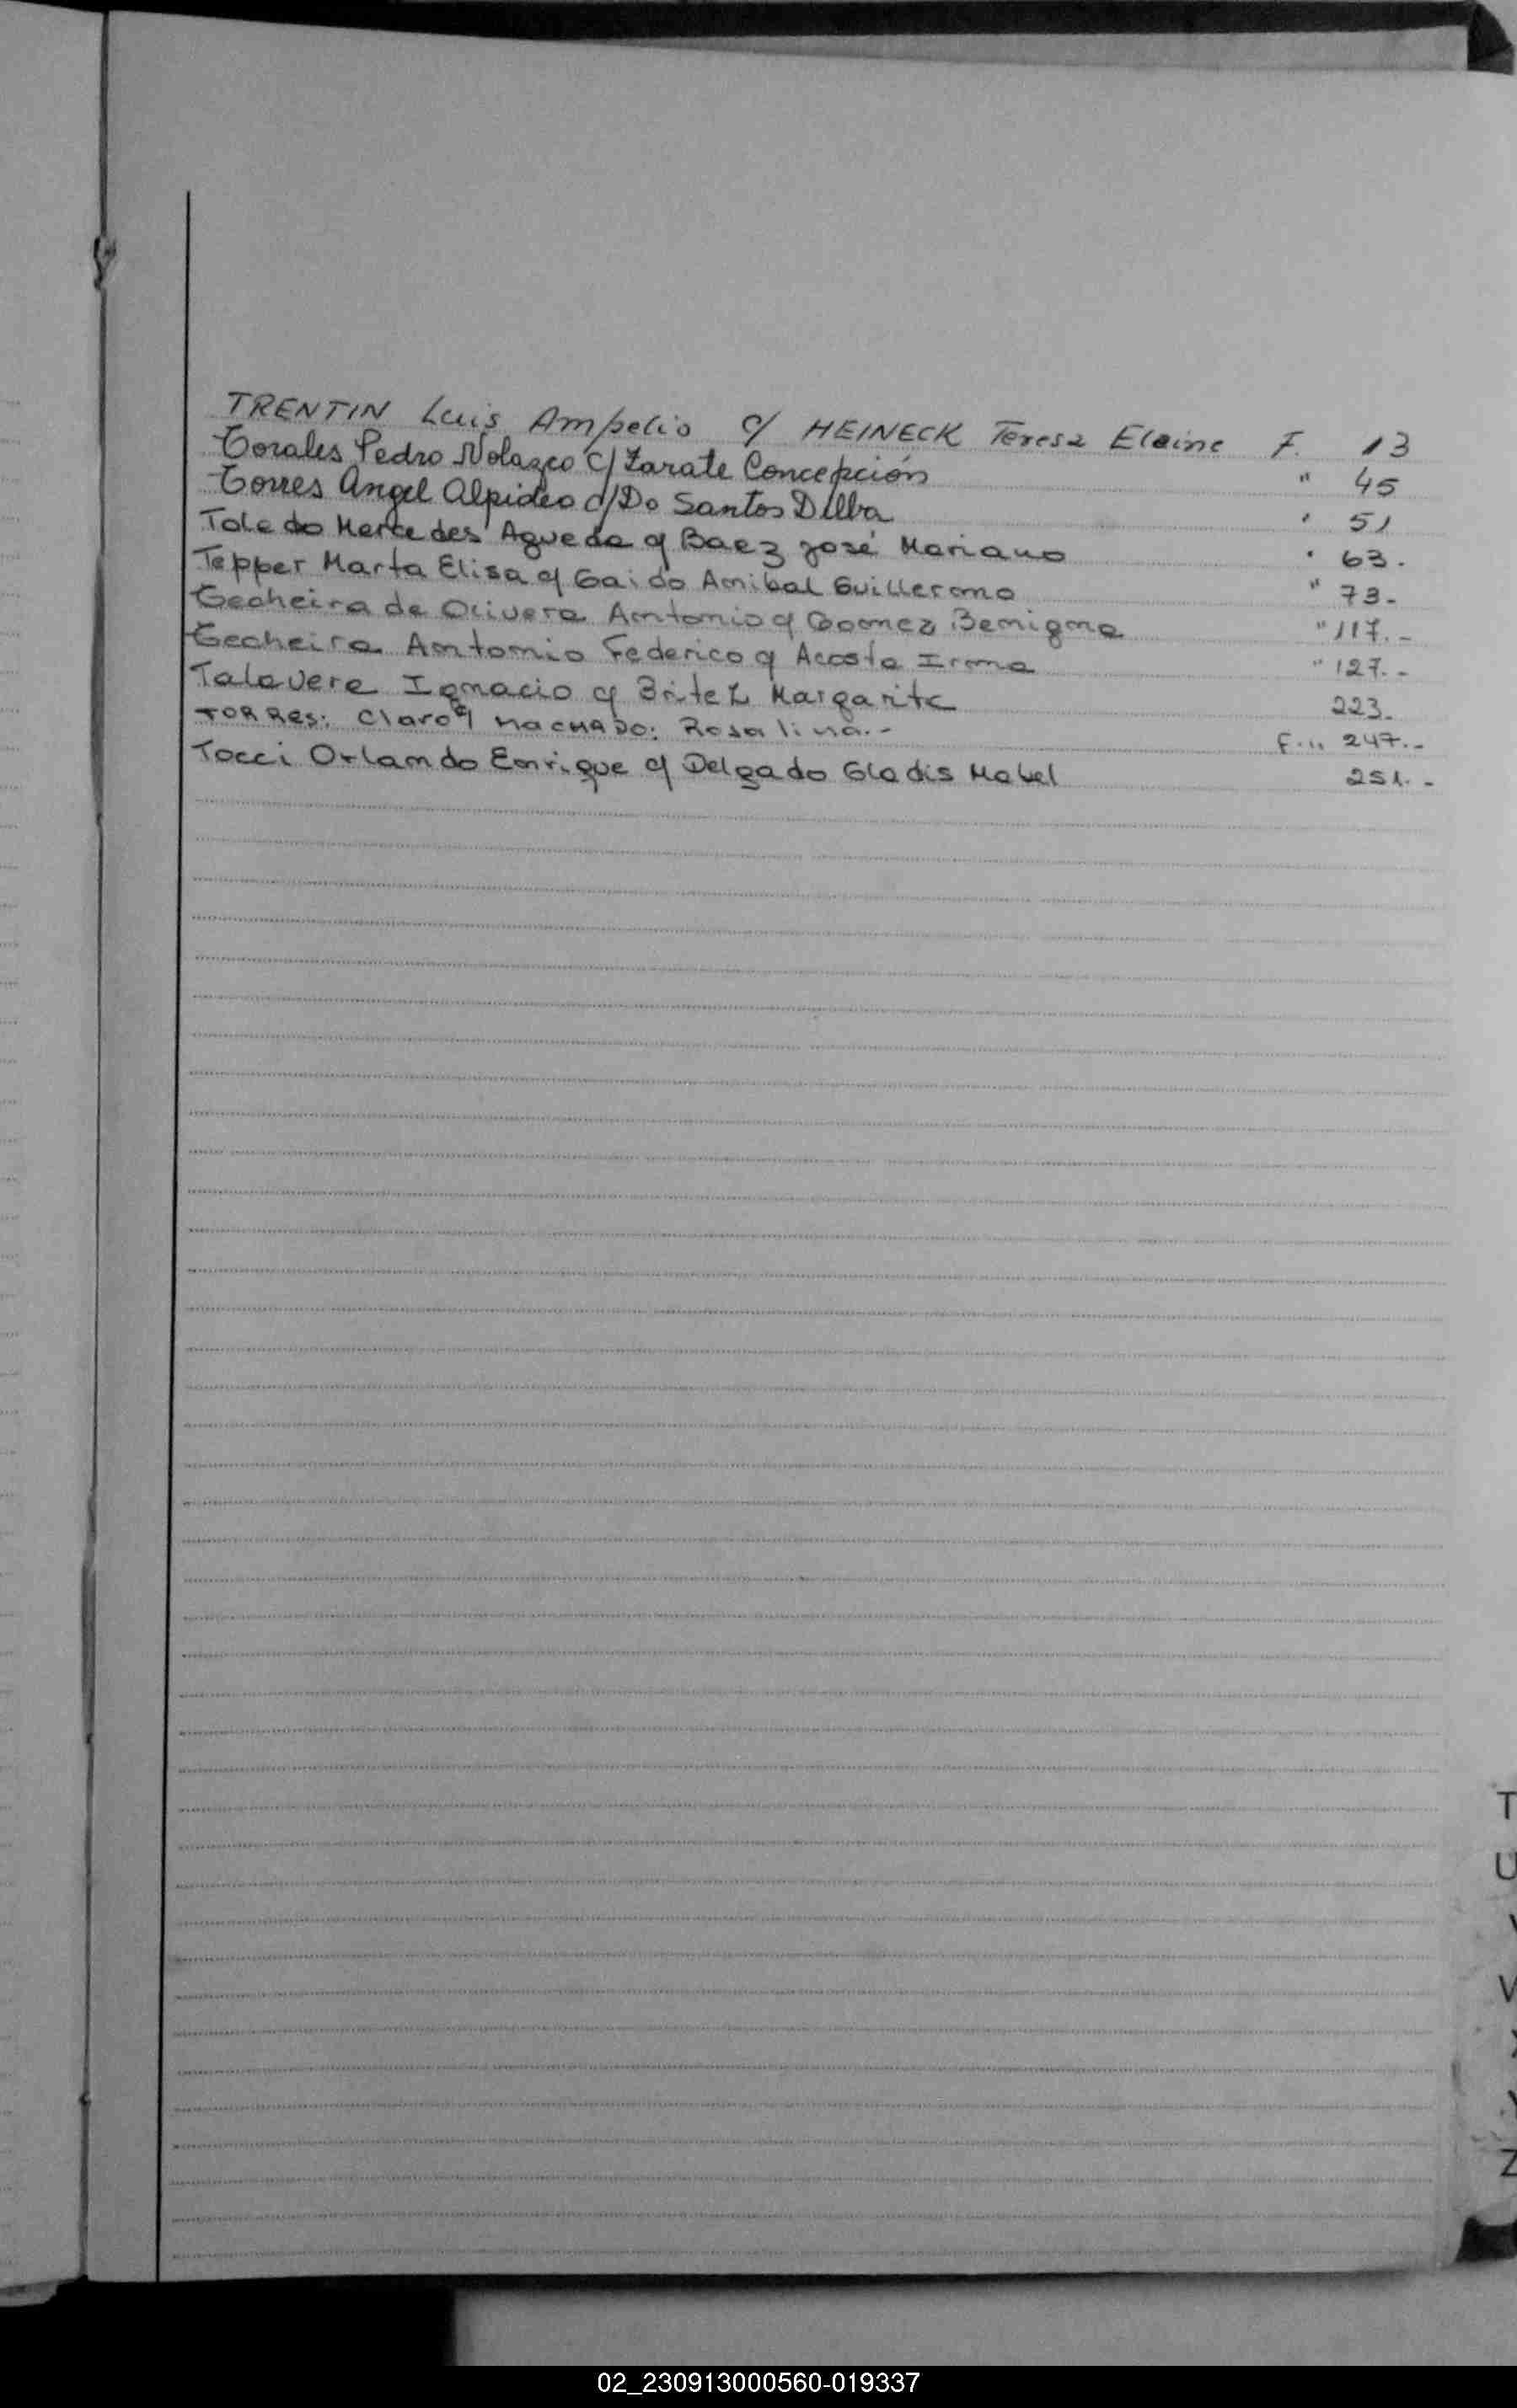 TRENTIN Luis Ampelio c/ HEINECK Teresa Elaine F. 13
Torales Pedro Nolazco c/ Zarate Concepción " 45
Torres Angel Alpideo c/ Do Santos Dilba " 51
Toledo Mercedes Agueda c/ Baez José Mariano " 63.
Tepper Marta Elisa c/ Gaido Anibal Guillermo " 73-
Techeira de Olivera Antonio c/ Gomez Benigna " 117.-
Techeira Antonio Federico c/ Acosta Irma " 127.-
Talavera Ignacio c/ Britez Margarita 223.
TORRES: Claro c/ MACHADO: Rosalina.- F.. 247.-
Tocci Orlando Enrique c/ Delgado Gladis Mabel 251.-
T
U
V
Z
02_230913000560-019337